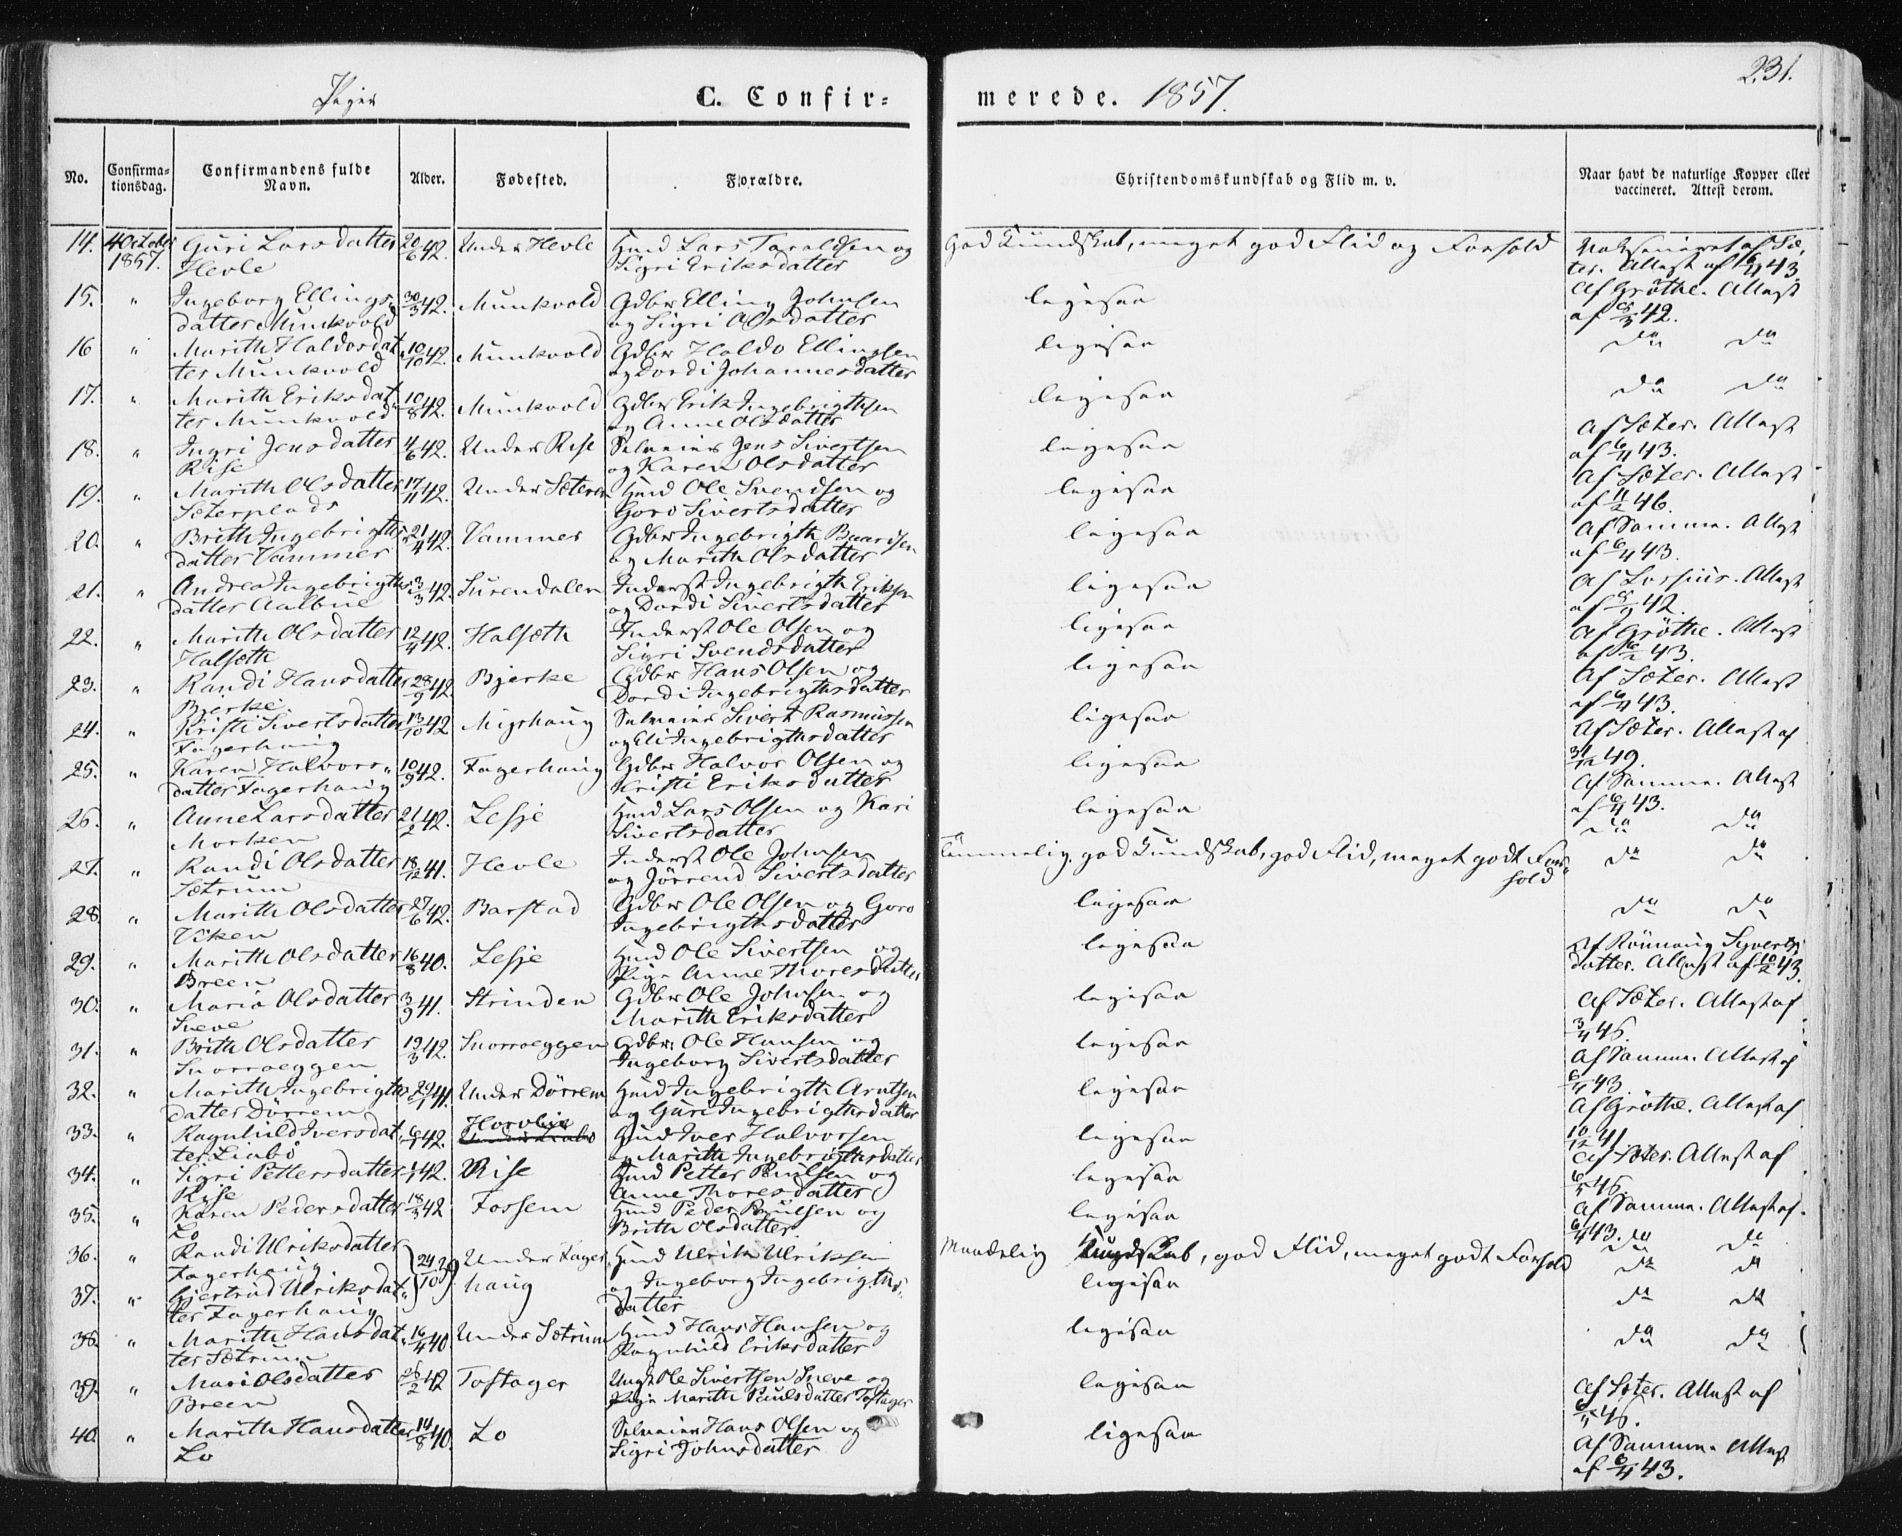 231.
Piger C. Confirmerede. 1857.
No. Confirmationsdag. Confirmandens fulde Navn. Alder. Fødested. Forældre. Christendomskundskab og Flid m. v. Naar havt de naturlige Kopper eller vaccineret. Attest derom.
14. 4 October 1857. Guri Larsdatter Hevle 20/6 42. Under Hevle Husmd Lars Taraldsen og Sigri Eriksdatter God Kundskab, meget god Flid og Forhold Vaksineret af Sæter. Attest af 6/4 43.
15. " Ingeborg Ellingsdatter Munkvold 30/3 42. Munkvold Gdbr Elling Johnsen og Sigri Olsdatter ligesaa Af Grøthe. Attest af 42.
16 " Marith Haldosdatter Munkvold 10/10 42. Munkvold Gdbr Haldo Ellingsen og Dordi Johannesdatter ligesaa do do
17. " Marith Eriksdatter Munkvold 10/8 42. Munkvold Gdbr Erik Ingebrigthsen og Anne Olsdatter ligesaa do do
18. " Ingri Jensdatter Rise 4/6 42. Under Rise Selveier Jens Sivertsen og Karen Olsdatter ligesaa Af Sæter. Attest af 6/4 43.
19. " Marith Olsdatter Sæterplads 17/11 42. Under Sæteren Husmd Ole Svendsen og Goro Sivertsdatter ligesaa Af Sæter. Attest af 46.
20. " Brith Ingebrigthsdatter Vammer 21/4 42. Vammer Gdbr Ingebrigth Baardsen og Marith Olsdatter ligesaa Af Samme. Attest af 6/4 43.
21. " Andrea Ingebrigthsdatter Aalbue 3/3 42. Surendalen Inderst Ingebrigth Eriksen og Dordi Sivertsdatter ligesaa Af Lossius. Attest af 42.
22. " Marith Olsdatter Halsæth 12/4 42. Halsæth Inderst Ole Olsen og Sigri Svendsdatter ligesaa Af Grøthe. Attest af 43.
23. " Randi Hansdatter Bjerke 28/9 42. Bjerke Gdbr Hans Olsen og Dordi Ingebrigthsdatter ligesaa Af Sæter. Attest af 6/4 43.
24. " Kristi Sivertsdatter Fagerhaug 13/10 42 Migshaug Selveier Sivert Rasmussen og Eli Ingebrigthsdatter ligesaa Af Sæter. Attest af 31/12 49.
25. " Karen Halvorsdatter Fagerhaug 10/9 42. Fagerhaug Gdbr Halvor Olsen og Kristi Eriksdatter ligesaa Af Samme. Attest af 6/4 43.
26. " Anne Larsdatter Morken 21/2 42. Lesje Husmd Lars Olsen og Kari Sivertsdatter ligesaa do do
27. " Randi Olsdatter Sætrum 18/12 41. Hevle Inderst Ole Johnsen og Jørrend Sivertsdatter Temmelig god Kundskab, god Flid, meget godt Forhold do do
28 " Marith Olsdatter Viken 27/6 42. Barstad Gdbr Ole Olsen og Goro Ingebrigthsdatter ligesaa do do
29. " Marith Olsdatter Breen 16/8 40. Lesje Husmd Ole Sivertsen og Pige Anne Thoresdatter ligesaa Af Rønnaug Syvertsdatter. Attest af 10/2 43.
30. " Maria Olsdatter Sneve 3/9 41. Strinden Gdbr Ole Johnsen og Marith Eriksdatter ligesaa Af Sæter. Attest af 3/4 46.
31. " Brith Olsdatter Snorroeggen 19/3 42. Snorroeggen Gdbr. Ole Hansen og Ingeborg Sivertsdatter ligesaa Af Samme. Attest af 6/4 43
32. " Marith Ingebrigthsdatter Dørrem 41. Under Dørrem Husmd Ingebrigth Arntsen og Guri Ingebrigthsdatter ligesaa Af Grøthe. Attest af 10/12 41.
33. " Ragnhild Iversdatter Liabø 42. Horvlia Husmd Iver Halvorsen og Marith Ingebrigthsdatter ligesaa Af Sæter. Attest af 46.
34. " Sigri Pettersdatter Rise 42. Rise Husmd Petter Paulsen og Anne Thoresdatter ligesaa Af Samme. Attest af 6/4 43.
35. " Karen Pedersdatter Lo 18/3 42 Fossem Husmd Peder Paulsen og Brith Olsdatter ligesaa do do
36. " Randi Ulriksdatter Fagerhaug Under Fagerhaug Husmd Ulrik Ulriksen og Ingeborg Ingebrigthsdatter Maadelig Kundskab, god Flid, meget godt Forhold do do
37. " Gjertrud Ulriksdatter Fagerhaug ligesaa do do
38. " Marith Hansdatter Sætrum 16/4 40. Under Sætrum Husmd Hans Hansen og Ragnhild Eriksdatter ligesaa do do
39. " Mari Olsdatter Breen 42 Toftager Ungk Ole Sivertsen Sneve og Pige Marith Paulsdatter Toftager ligesaa Af Sæter. Attest af 46.
40. " Marith Hansdatter Lo 14/8 40. Lo Selveier Hans Olsen og Sigri Johnsdatter ligesaa Af Samme. Attest af 6/4 43.